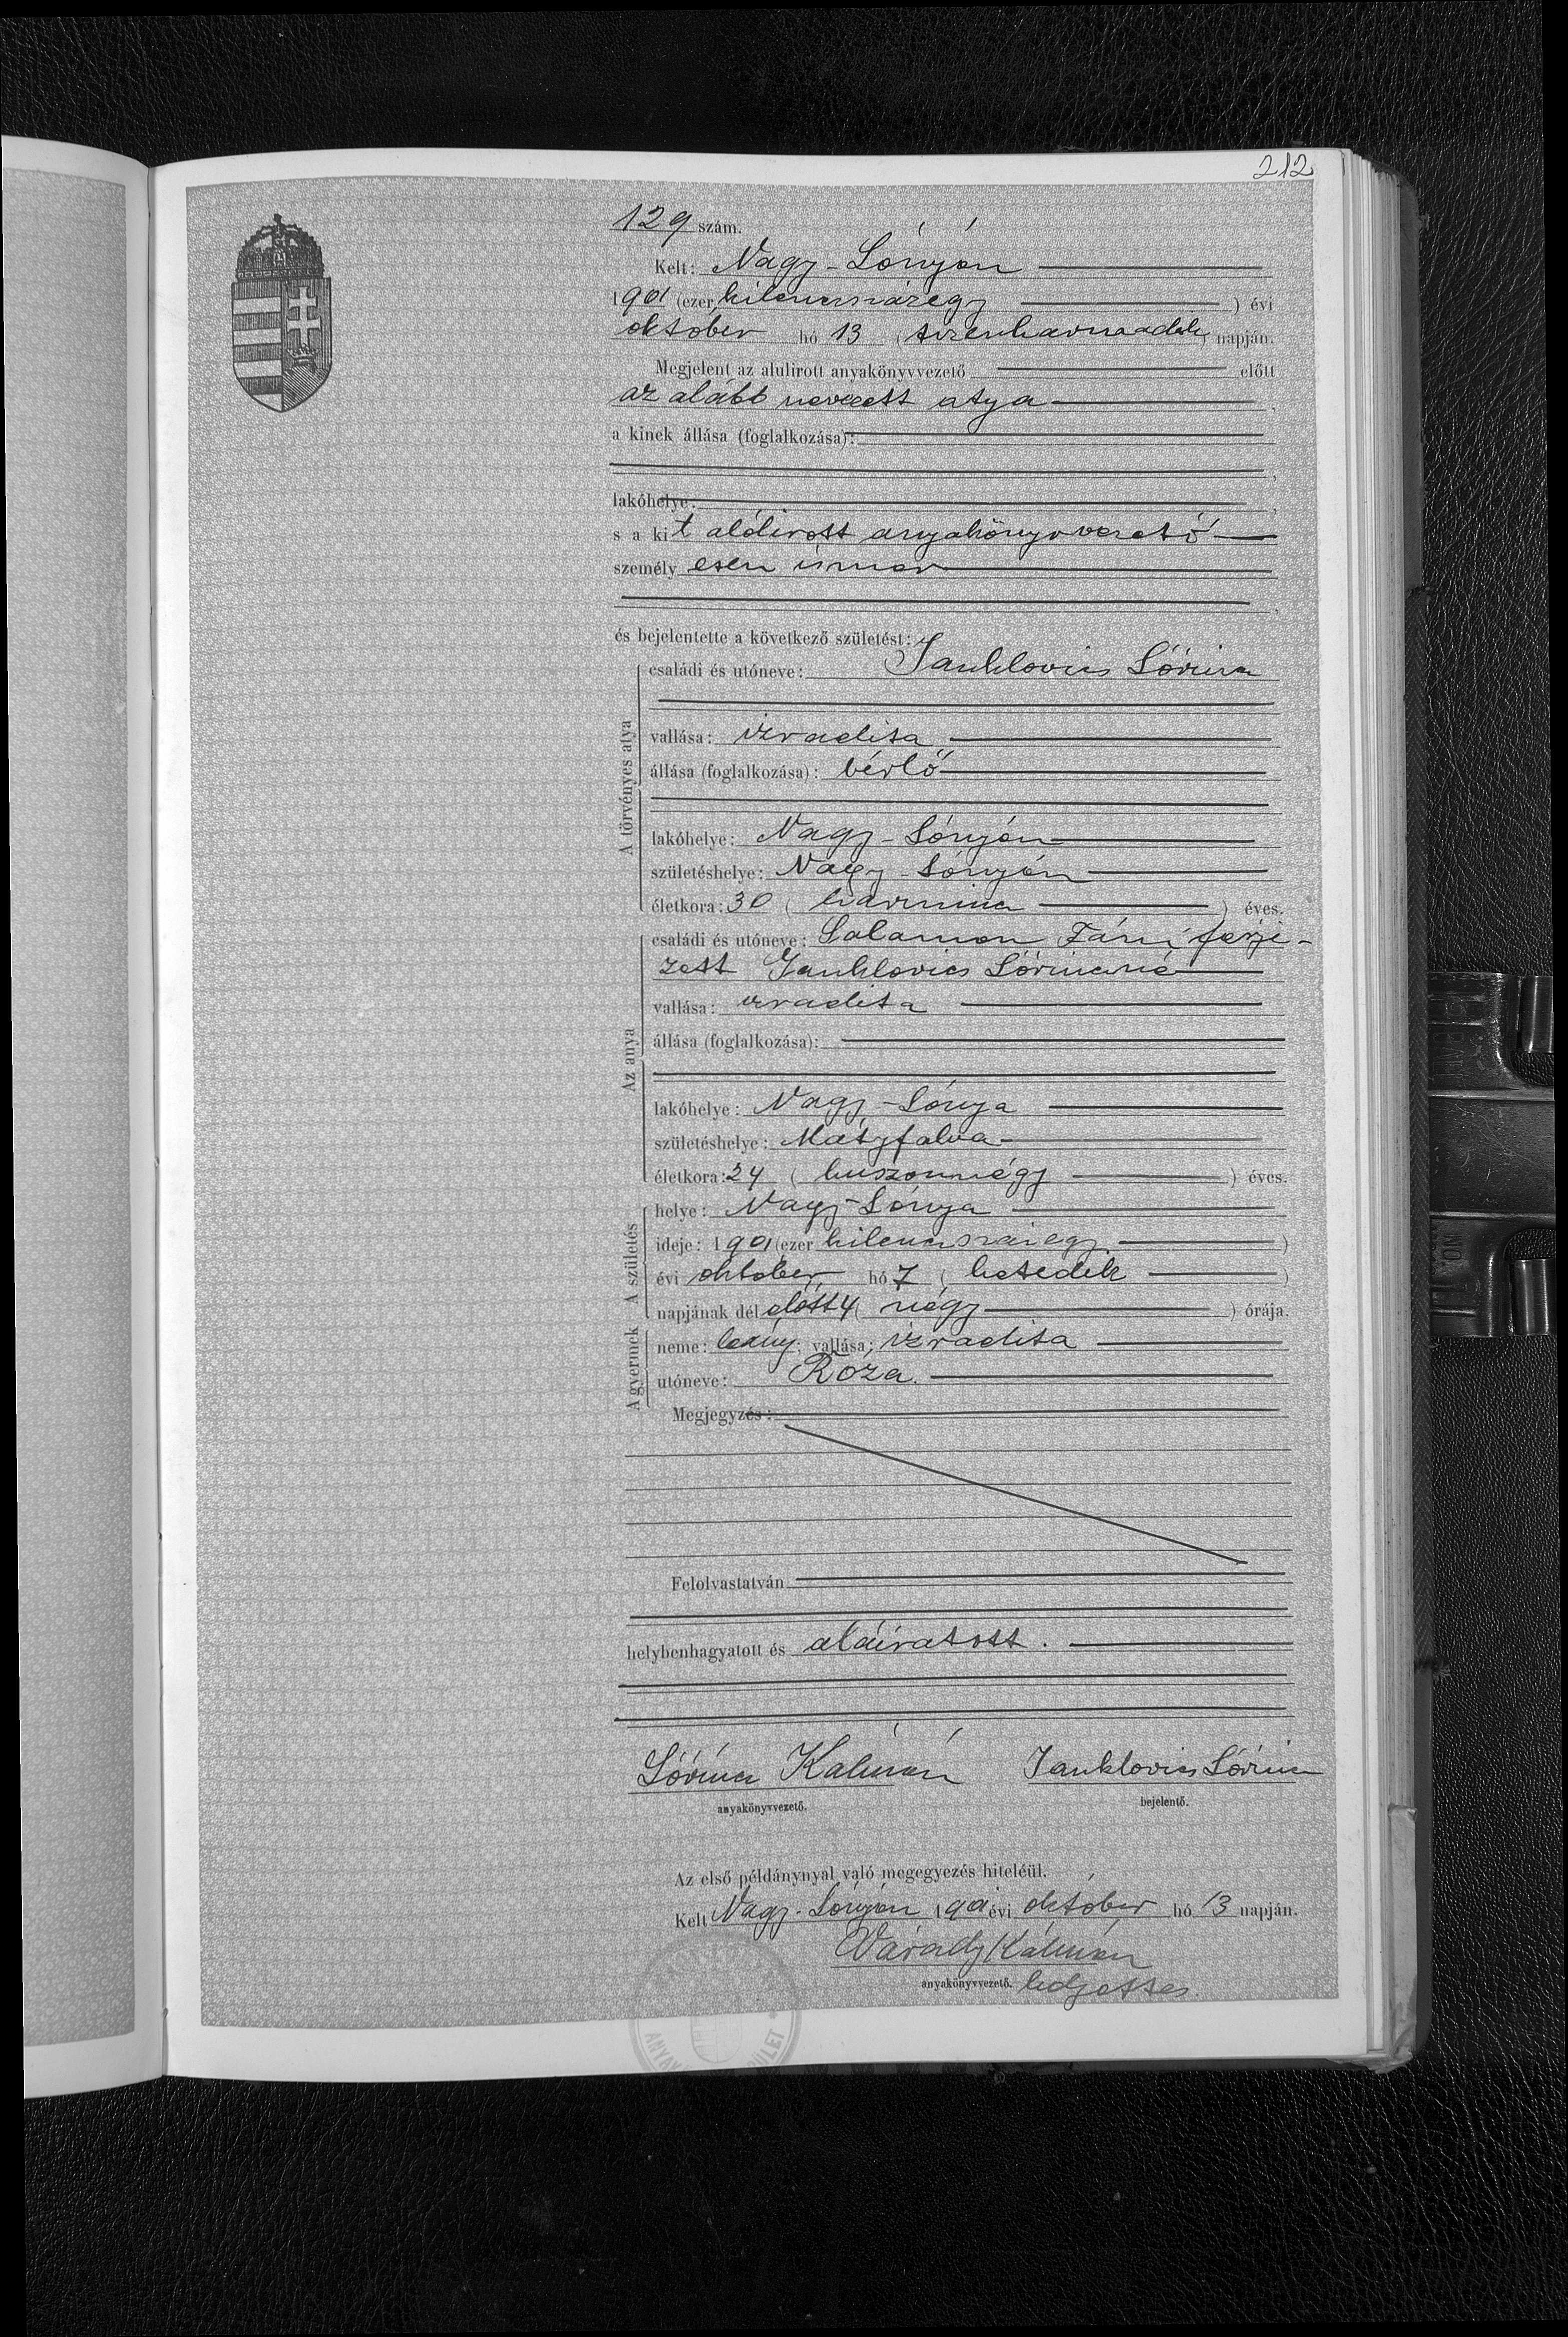 212
129 szám.
Kelt: Nagy-Lónyán
1901 (ezer kilencszázegy ) évi
október hó 13 ( tizenharmadik ) napján.
Megjelent az alulirott anyakönyvvezető előtt
az alább nevezett atya ,
a kinek állása (foglalkozása):
,
lakóhelye: ,
s a kit alólirott anyakönyvvezető
személy esen ismer
,
és bejelentette a következő születést:
A törvényes atya
családi és utóneve: Janklovics Lőrincz
vallása: izraelita
állása (foglalkozása): bérlő
lakóhelye: Nagy-Lónyán
születéshelye: Nagy-Lónyán
életkora: 30 ( harmincz ) éves.
Az anya
családi és utóneve: Salamon Fáni férje-
zett Janklovics Lőrinczné
vallása: izraelita
állása (foglalkozása):
lakóhelye: Nagy-Lónya
születéshelye: Mátyfalva
életkora: 24 ( huszonnégy ) éves.
A születés
helye: Nagy-Lónya
ideje: 1901 (ezer kilenczszázegy )
évi október hó 7 ( hetedik )
napjának dél előtt 4 ( négy ) órája.
A gyermek
neme: leány; vallása: izraelita
utóneve: Róza.
Megjegyzés:
Felolvastatván
helybenhagyatott és aláiratott.
Lőrincz Kálmán Janklovics Lőrincz
anyakönyvvezető. bejelentő.
Az első példánynyal való megegyezés hiteléül.
Kelt Nagy-Lónyán 1901 évi október hó 13 napján.
Várady Kálmán
anyakönyvvezető. helyettes.